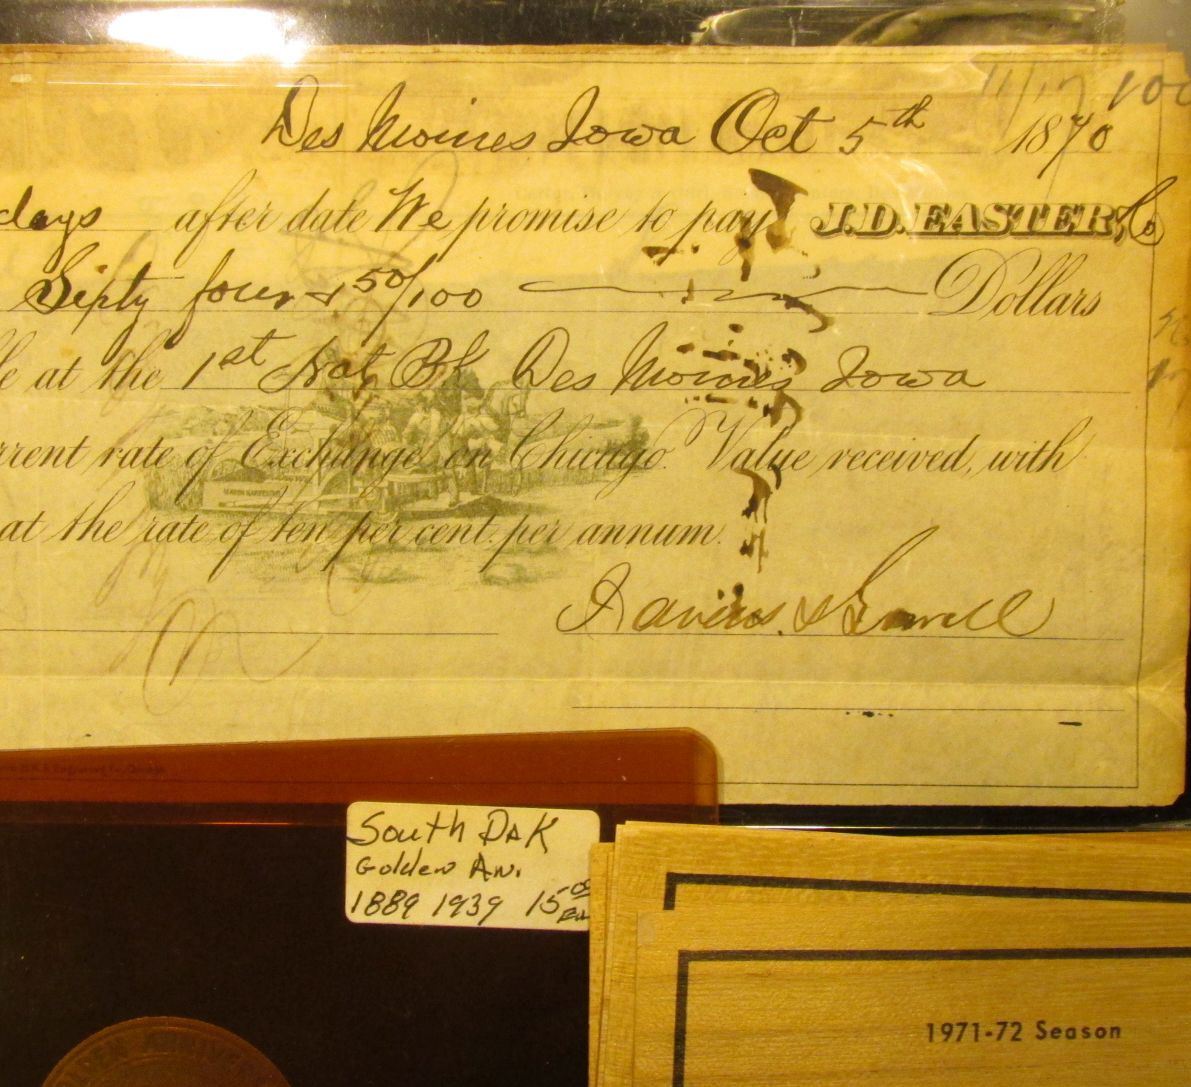 11/17 100
Des Moines Iowa Oct 5th 1870
days after date We promise to pay J.D. EASTER, & Co
Sixty four & 50/100 Dollars
at the 1st Nat Bk Des Moines Iowa
rrent rate of Exchange on Chicago. Value received, with
at the rate of ten per cent. per annum.
South Dak
Golden An.
1889 1939 15.00
Ea
GOLDEN ANNIVE
1971-72 Season